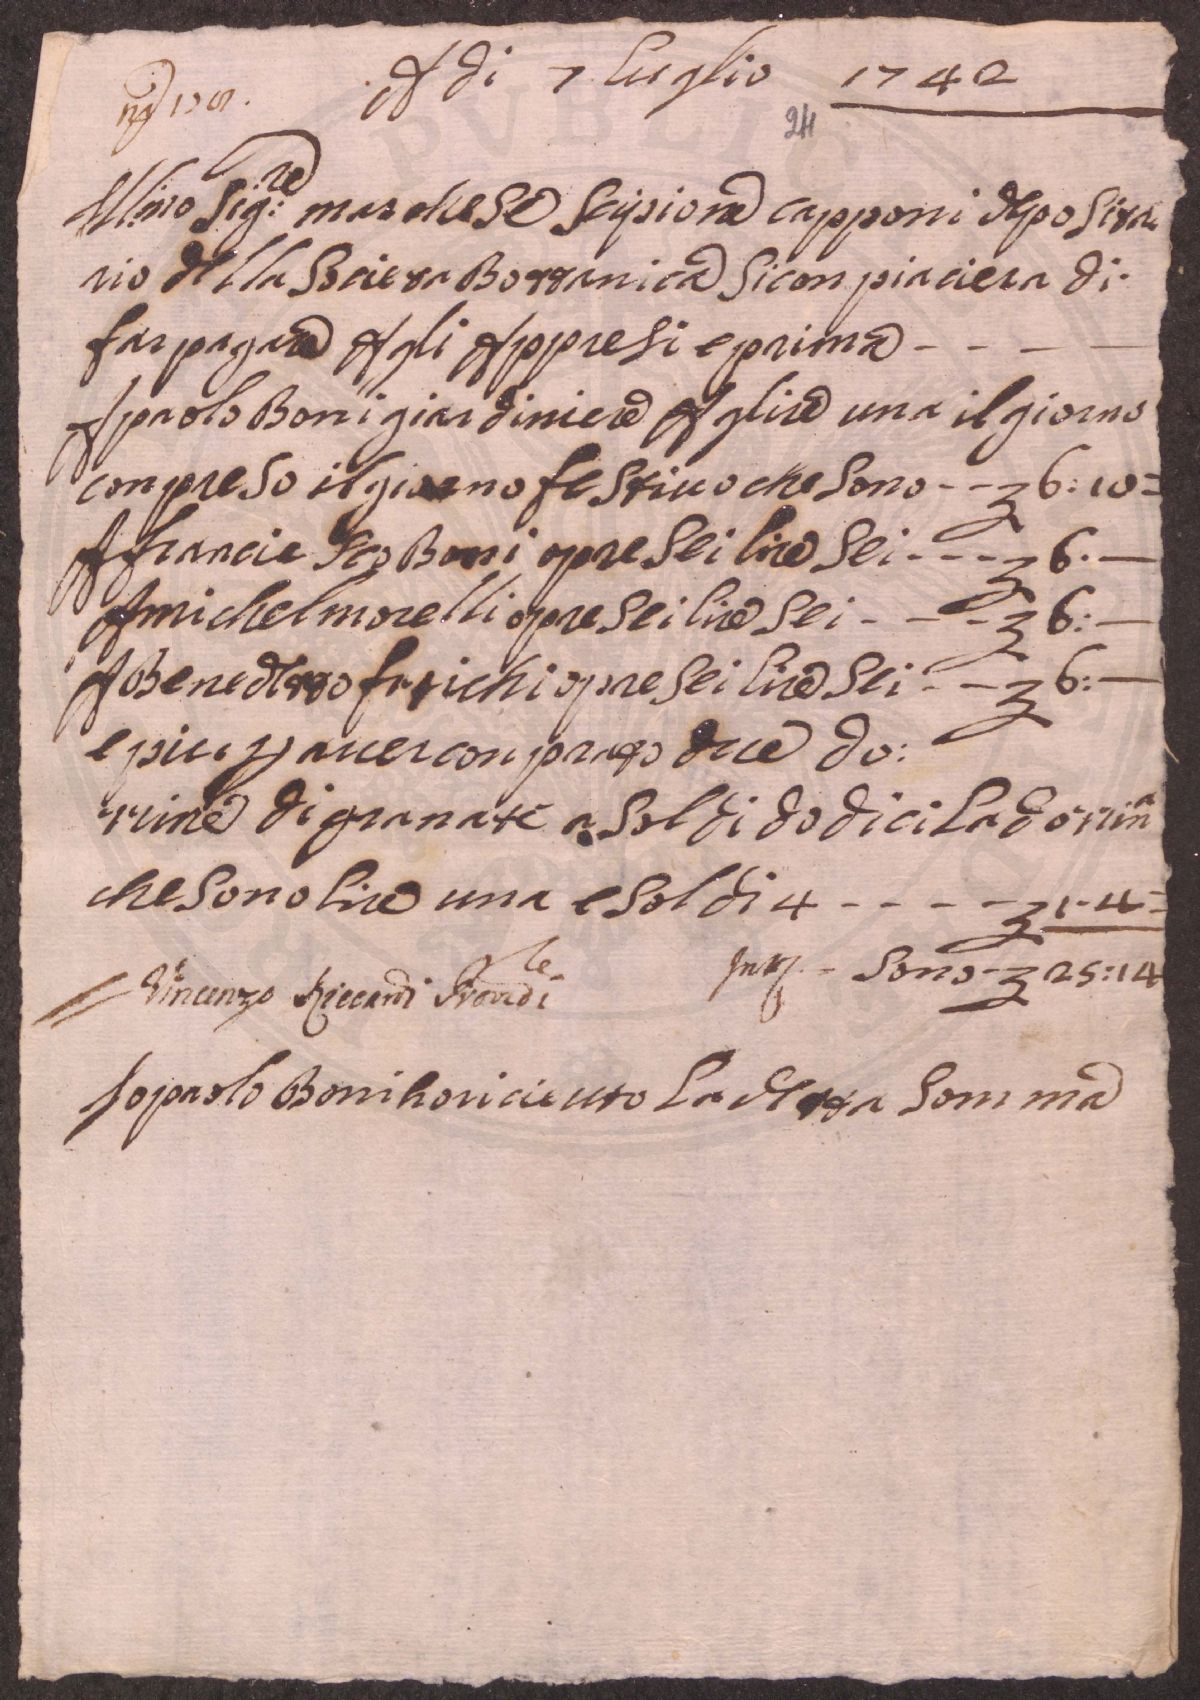 A di 7 luglio 1742
24
Ill.mo Sig:re marchese Scipione capponi deposita
rio della Societa Bottanica Si conpiaciera di
far pagare Agli Appresi e prima
A paolo Boni giardiniere A glire una il giorno
conpreso il giorno festiuo che sono -- 6:10=
A francie sco Boni opre sei lire sei --- 6.—
A michel morelli opre sei lire sei --- 6:—
A Benedetto opre sei lire sei -- 6:—
e piu p auer conprato due do:
zine di granate a soldi dodici la dozina
che sono lire una e soldi 4 ---- 1-4=
Sono- 25:14
Vincenzo Riccardi Provd.le
Io paolo Boni ho riceuto La detta Somma